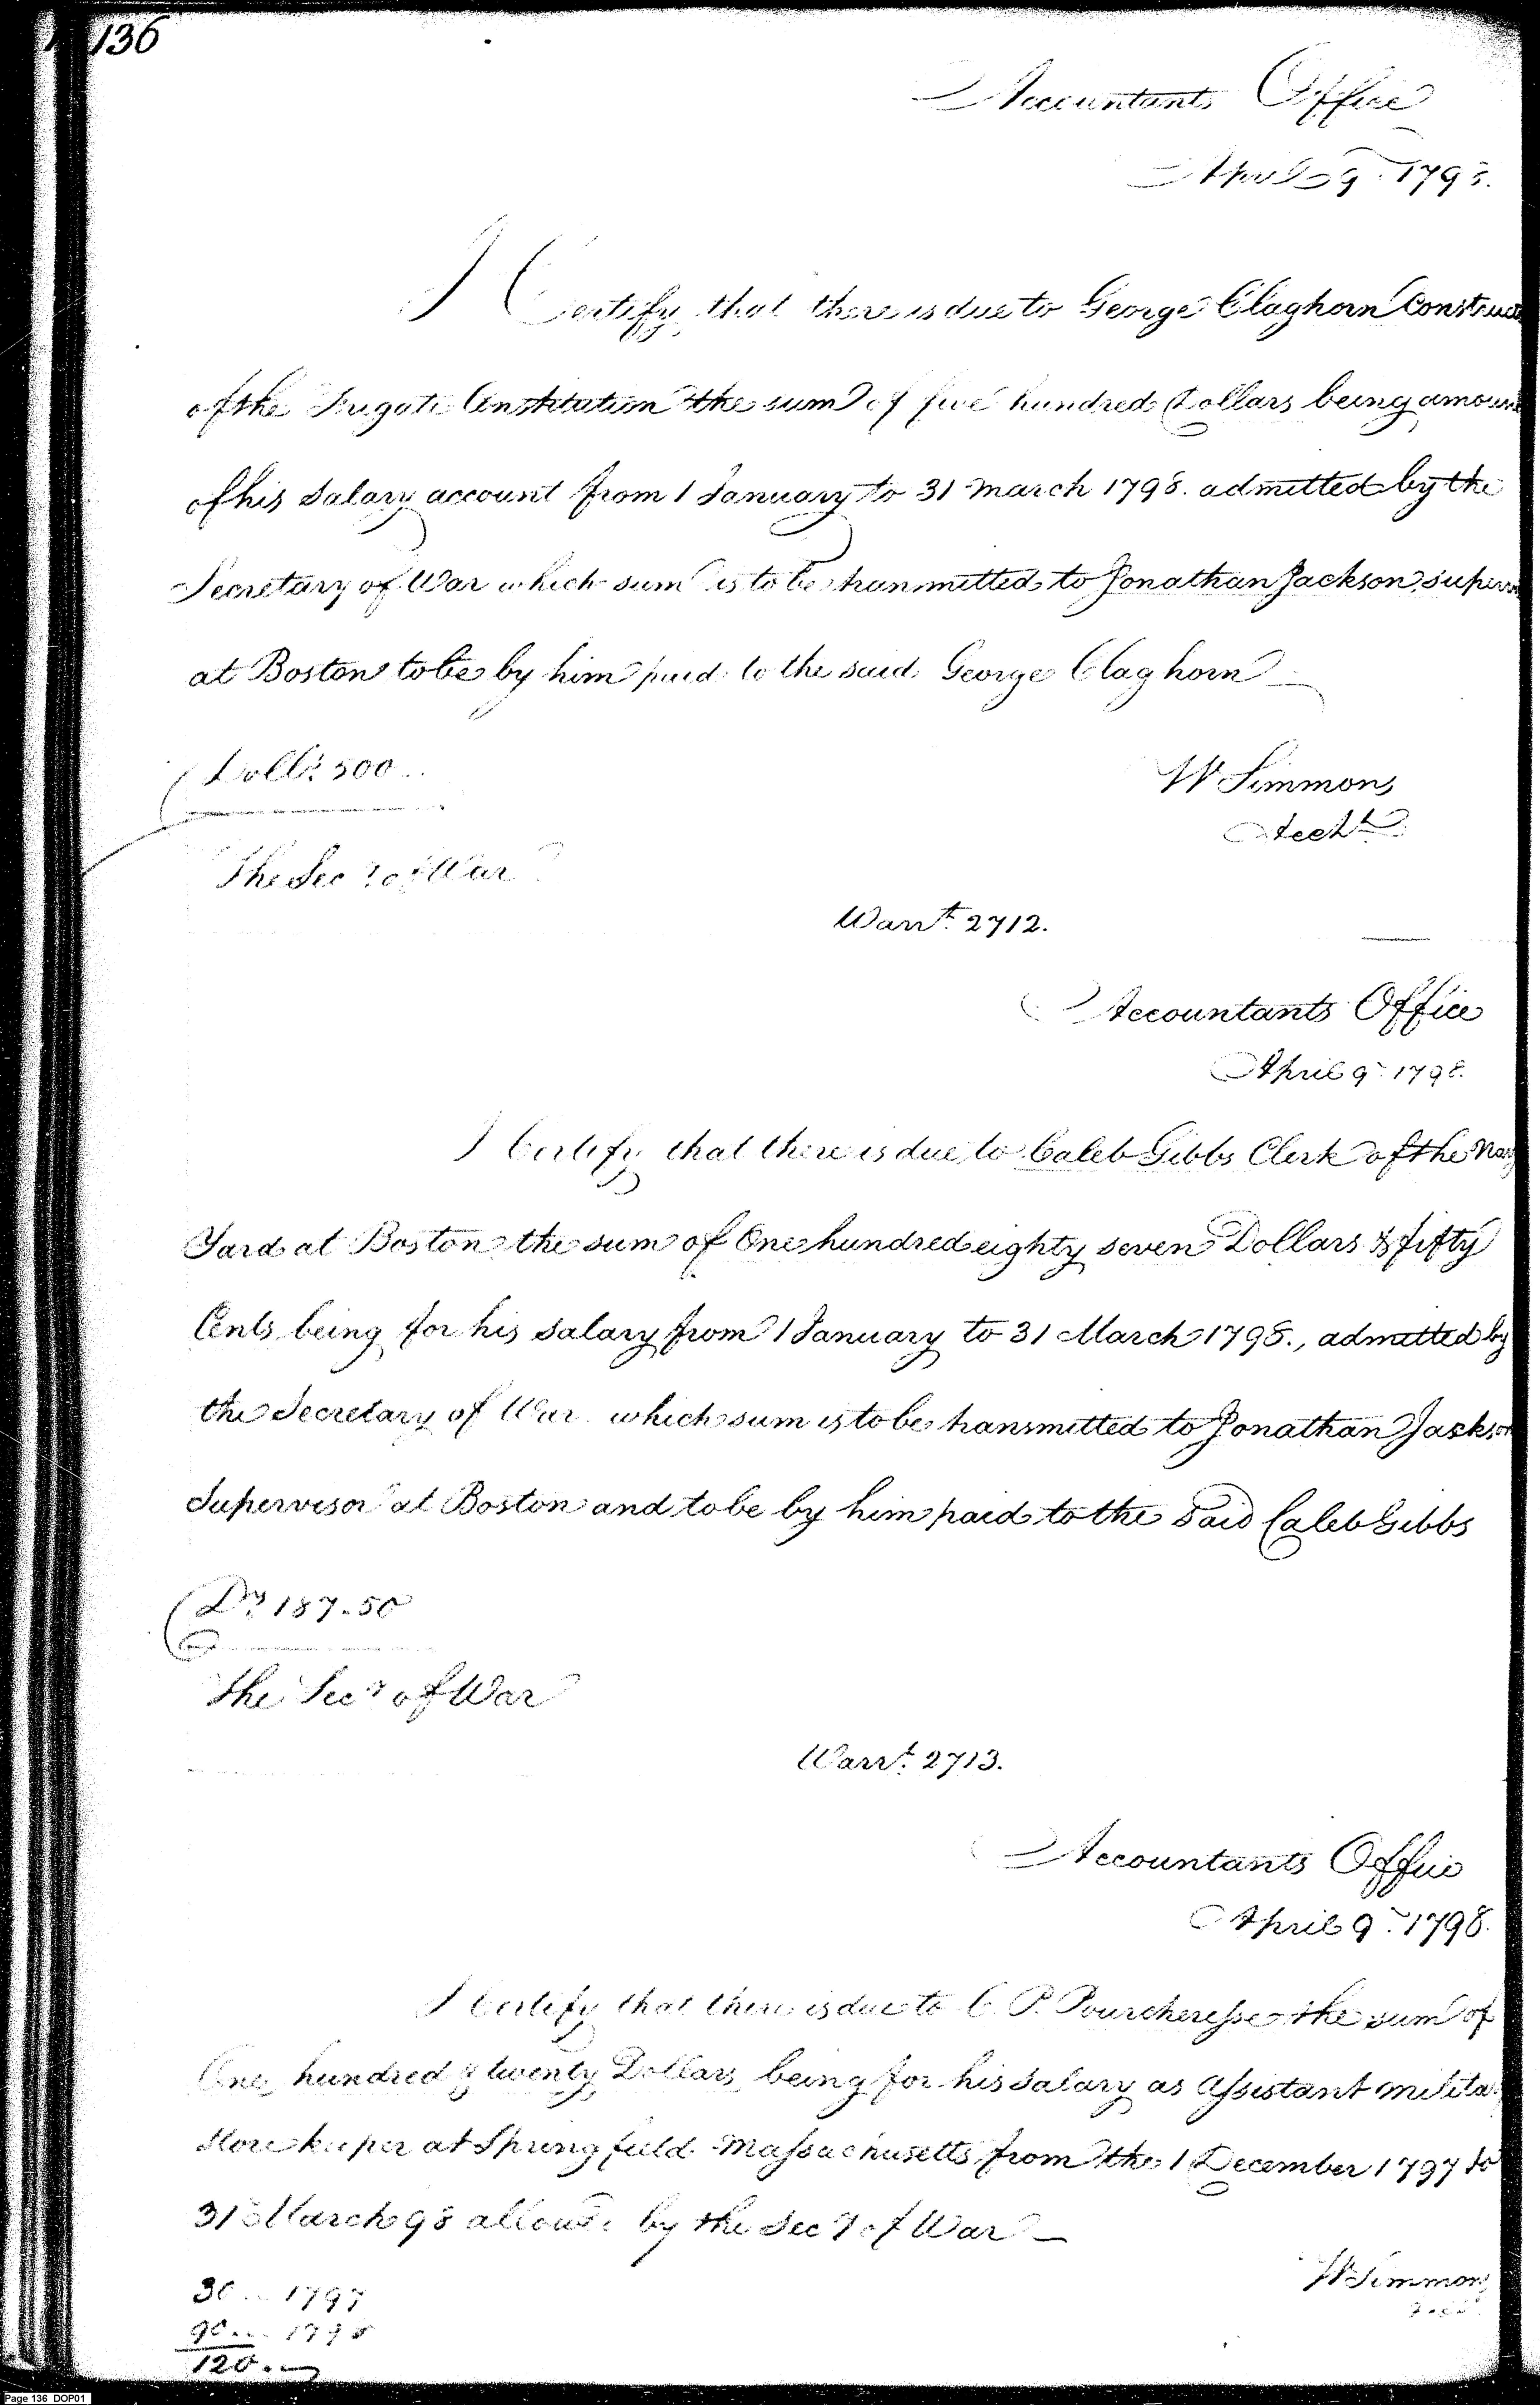 136
Accountants Office
April 9th 1798.
I Certify that there is due to George Claghorn Construct
of the Frigate Constitution the sum of five hundred Dollars being amount
of his Salary account from 1 January to 31 March 1798. admitted by the
Secretary of War which sum is to be transmitted to Jonathan Jackson, superv
at Boston to be by him paid to the said George Claghorn
Dolls. 500..
W Simmons
Acct
The Secy of War
Warrt. 2712.
Accountants Office
April 9th 1798.
I Certify that there is due to Caleb Gibbs Clerk of the Navy
Yard at Boston the sum of One hundred eighty seven Dollars & fifty
Cents being for his Salary from 1 January to 31 March 1798., admitted by
the Secretary of War which sum is to be transmitted to Jonathan Jackson
Supervisor at Boston and to be by him paid to the said Caleb Gibbs
Drs 187.50
The Secy of War
Warrt. 2713.
Accountants Office
April 9th 1798.
I Certify that there is due to C. P. Pourcheresse the sum of
One hundred & twenty Dollars being for his Salary as Assistant milita
Store keeper at Springfield Massachusetts from the 1 December 1797 to
31 March 98 allowd. by the Secy of War
W Simmons
30... 1797
90... 1798
120.
Page 136 DOP01